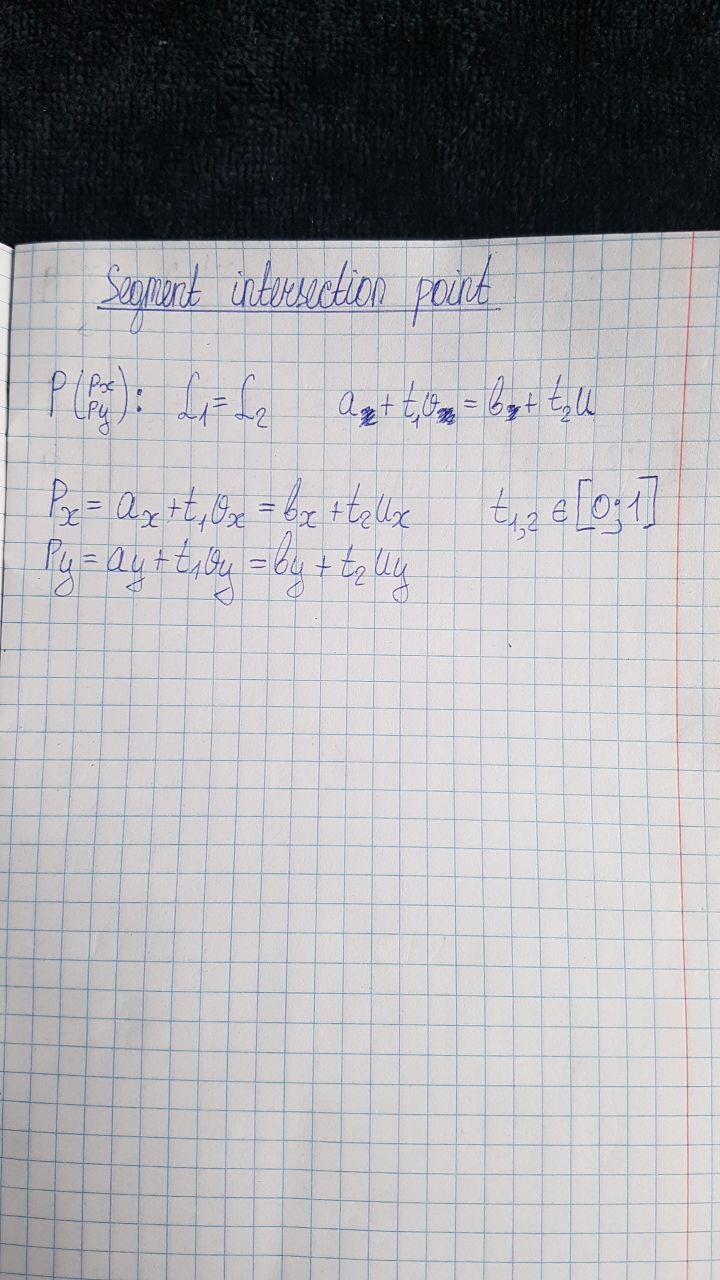 Segment intersection point
P(Px Py): L₁ = L₂ a + t₁v = b + t₂u
Px = ax + t₁vx = bx + t₂ux t₁,₂ ∈ [0;1]
Py = ay + t₁vy = by + t₂uy